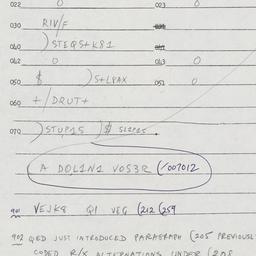 022 0 023 0
030 RIV/F
040 )STEQS+K81
042 0 043 0
050 $ )S+LPAX 051 0
060 +/DRUT+
070 )STUP15 )$ S12P15
A DOL1N1 VOS3R (/007012
901 VEJK8 QI VEG (212 (259
902 QED JUST INTRODUCED PARAGRAPH (205 PREVIOUSL
CODED R/X ALTERNATIONS UNDER (208